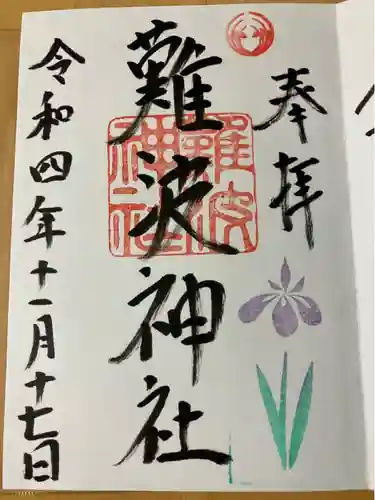 奉拝
難波神社
難波
神社
令和四年十一月十七日